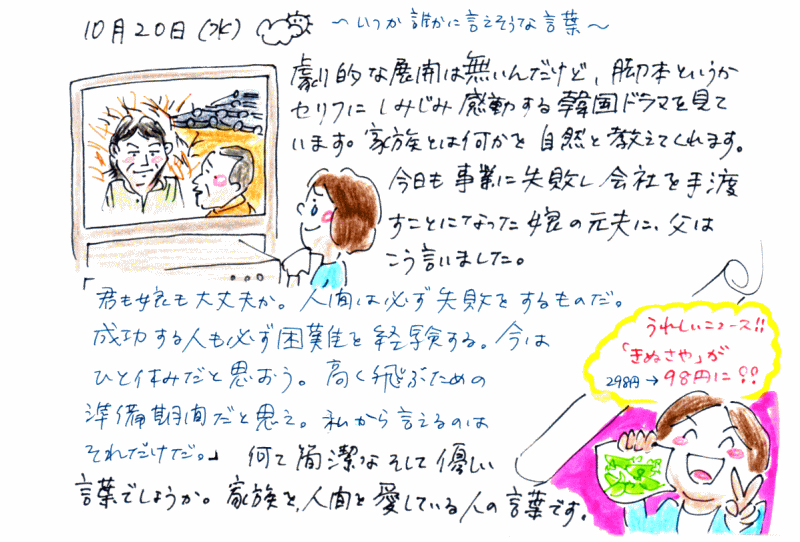 10月20日(水)
～いつか誰かに言えそうな言葉～
劇的な展開は無いんだけど、脚本というか
セリフにしみじみ感動する韓国ドラマを見て
います。家族とは何かを自然と教えてくれます。
今日も事業に失敗し会社を手渡
すことになった娘の元夫に、父は
こう言いました。
君も娘も大丈夫か。人間は必ず失敗をするものだ。
成功する人も必ず困難を経験する。今は
ひと休みだと思おう。高く飛ぶための
準備期間だと思え。私から言えるのは
それだけだ。」何て簡潔なそして優しい
言葉でしょうか。家族を、人間を愛している人の言葉です。
うれしいニュース!!
「きぬさや」が
298円→98円に!!